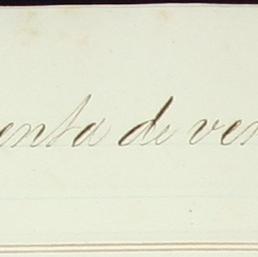 enta de ven